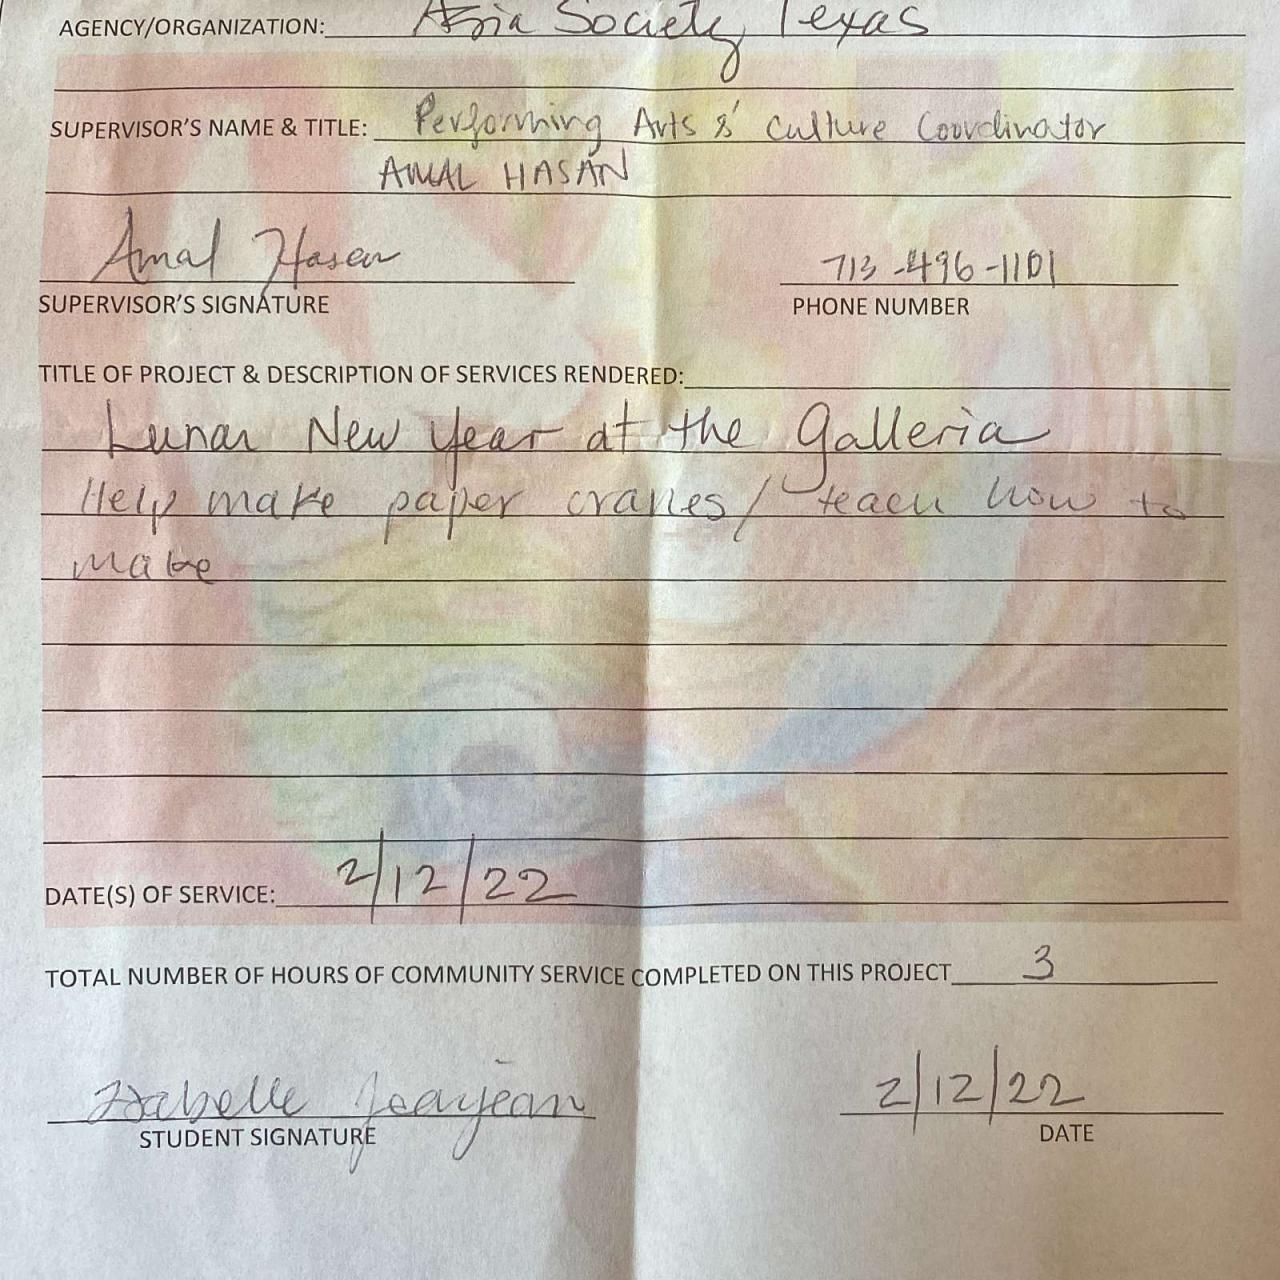 AGENCY/ORGANIZATION: Asia Society Texas
SUPERVISOR'S NAME & TITLE: Performing Arts & Culture Coordinator
AMAL HASAN
Amal Hasan 713-496-1101
SUPERVISOR'S SIGNATURE PHONE NUMBER
TITLE OF PROJECT & DESCRIPTION OF SERVICES RENDERED:
Lunar New Year at the Galleria
Help make paper cranes/ teach how to
make
DATE(S) OF SERVICE: 2/12/22
TOTAL NUMBER OF HOURS OF COMMUNITY SERVICE COMPLETED ON THIS PROJECT 3
Isabelle 2/12/22
STUDENT SIGNATURE DATE